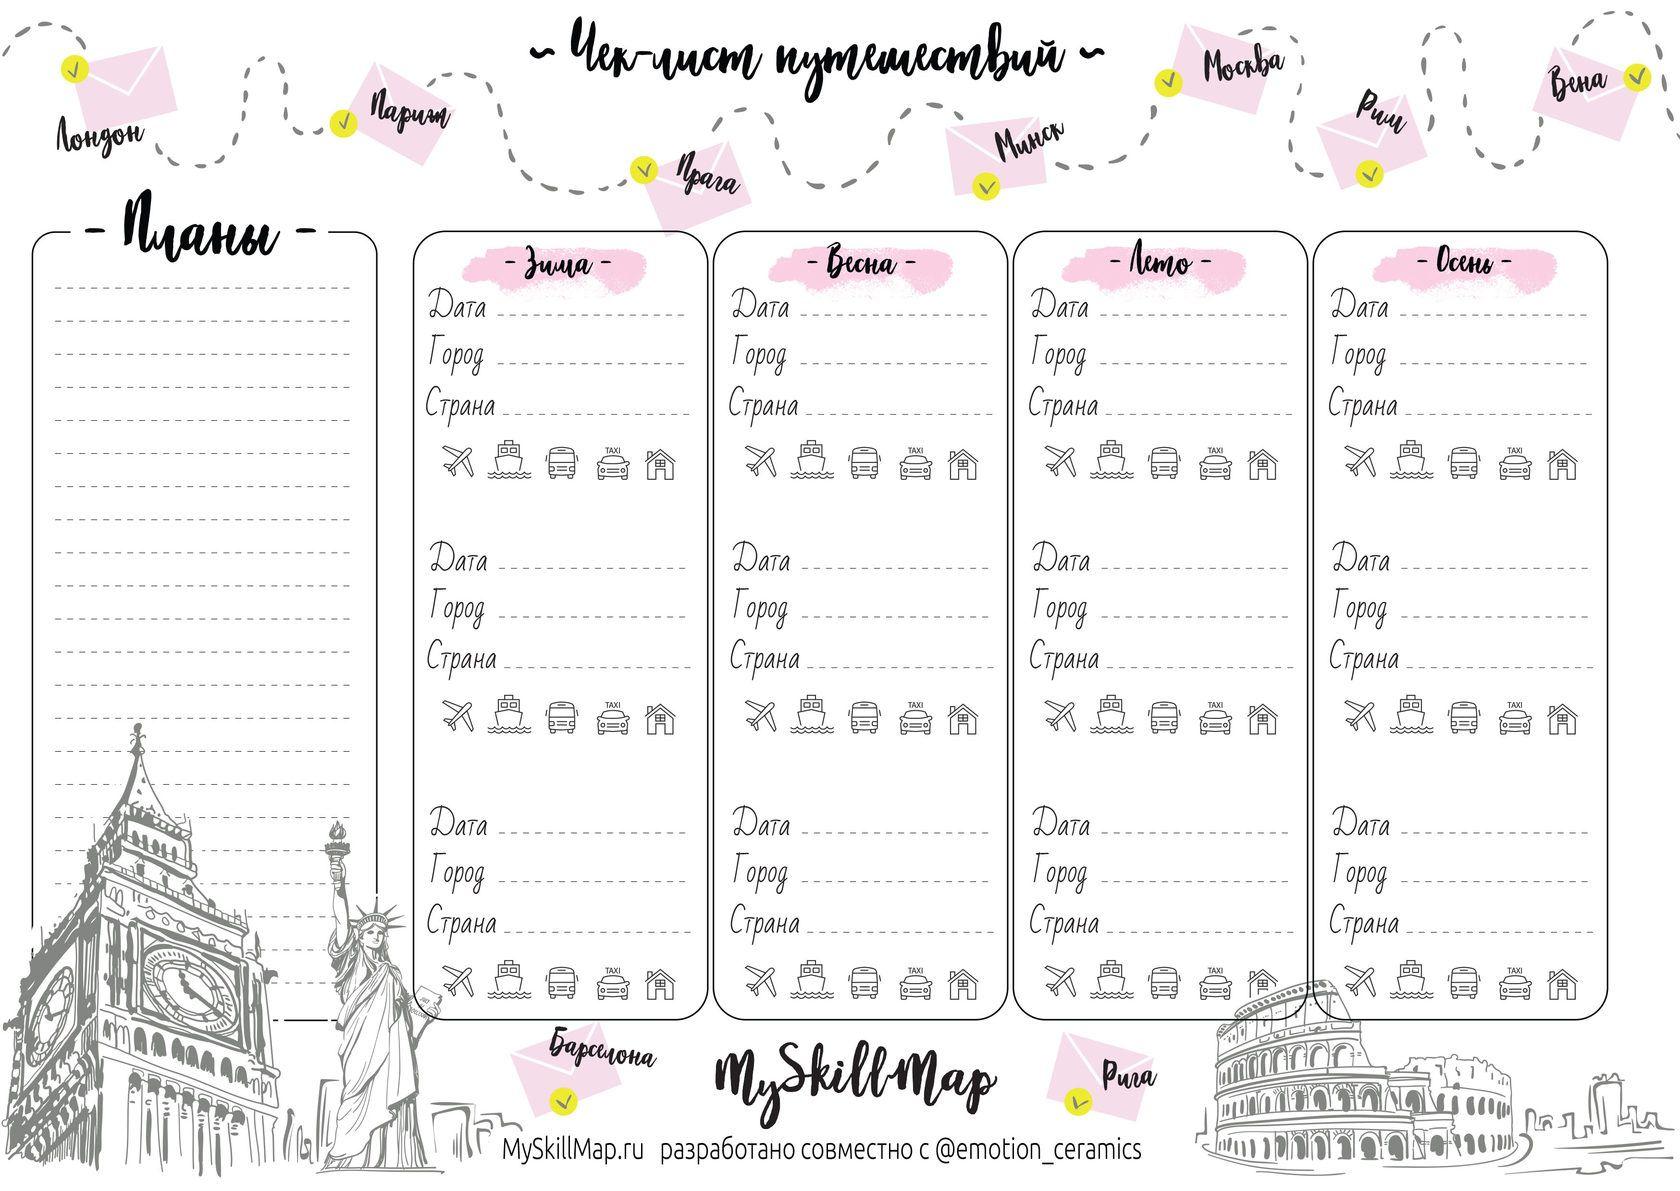 ~ Чек-лист путешествий ~
Лондон
Париж
Прага
Минск
Москва
Рим
Вена
- Планы -
- Зима -
Дата
Город
Страна
TAXI
Дата
Город
Страна
TAXI
Дата
Город
Страна
TAXI
- Весна -
Дата
Город
Страна
TAXI
Дата
Город
Страна
TAXI
Дата
Город
Страна
TAXI
- Лето -
Дата
Город
Страна
TAXI
Дата
Город
Страна
TAXI
Дата
Город
Страна
TAXI
- Осень -
Дата
Город
Страна
TAXI
Дата
Город
Страна
TAXI
Дата
Город
Страна
TAXI
Барселона
MySkillMap
Рига
MySkillMap.ru разработано совместно с @emotion_ceramics